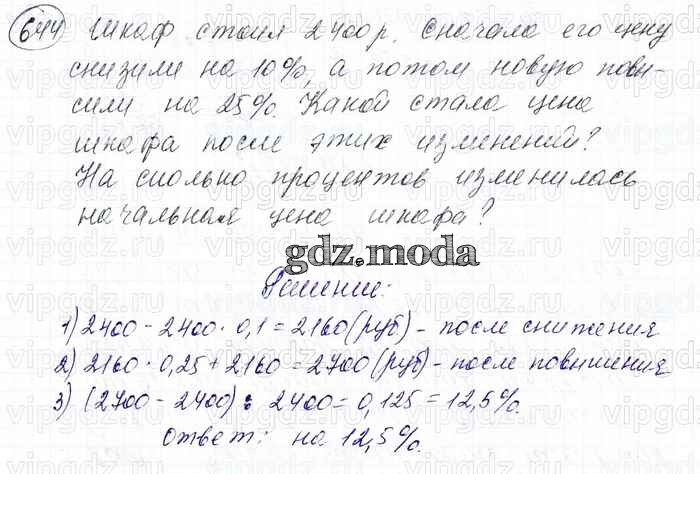 644 Шкаф стоил 2400р. Сначала его цену
снизили на 10%, а потом новую повы-
сили на 25%. Какой стала цена
шкафа после этих изменений?
На сколько процентов изменилась
начальная цена шкафа?
gdz.moda
Решение:
1) 2400 - 2400 · 0,1 = 2160 (руб) - после снижения
2) 2160 · 0,25 + 2160 = 2700 (руб) - после повышения
3) (2700 - 2400) : 2400 = 0,125 = 12,5%.
Ответ: на 12,5%.